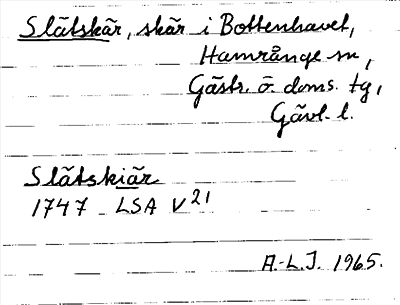 Slätskär, skär i Bottenhavet,
Hamrånge sn,
Gästr. ö. doms. tg,
Gävl. l.
Slätskiär
1747 LSA V21
A.-L.J. 1965.